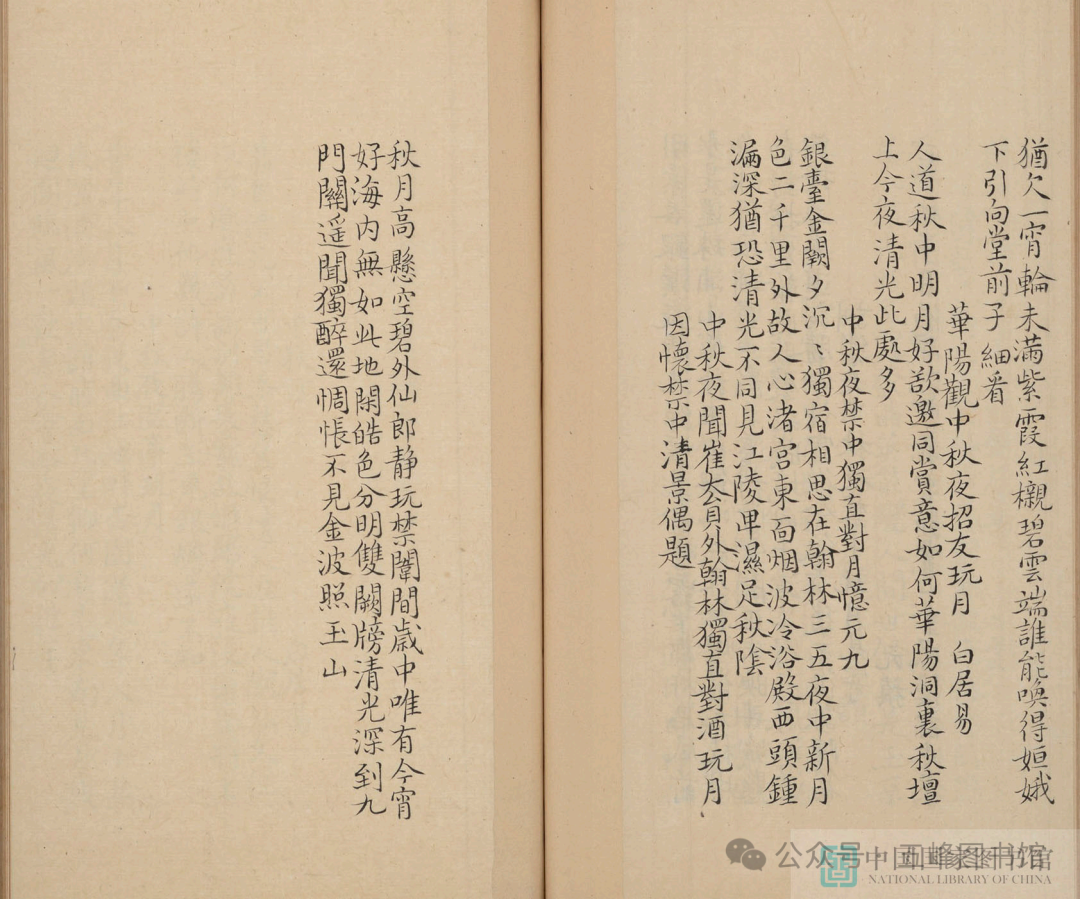 猶欠一宵輪未滿紫霞紅襯碧雲端誰能喚得姮娥
下引向堂前子細看
華陽觀中秋夜招友玩月　白居易
人道秋中明月好歆邀同賞意如何華陽洞裏秋壇
上今夜清光此處多
中秋夜禁中獨直對月憶元九
銀臺金闕夕沉〻獨宿相思在翰林三五夜中新月
色二千里外故人心渚宮東面烟波冷浴殿西頭鍾
漏深猶恐清光不同見江陵卑濕足秋陰
中秋夜聞崔大員外翰林獨直對酒玩月
因懷禁中清景偶題
秋月高懸空碧外仙郎静玩禁闈間歲中唯有今宵
好海内無如此地閑皓色分明雙闕牓清光深到九
門關遥聞獨醉還惆悵不見金波照玉山
公众号·中国国家图书馆
NATIONAL LIBRARY OF CHINA